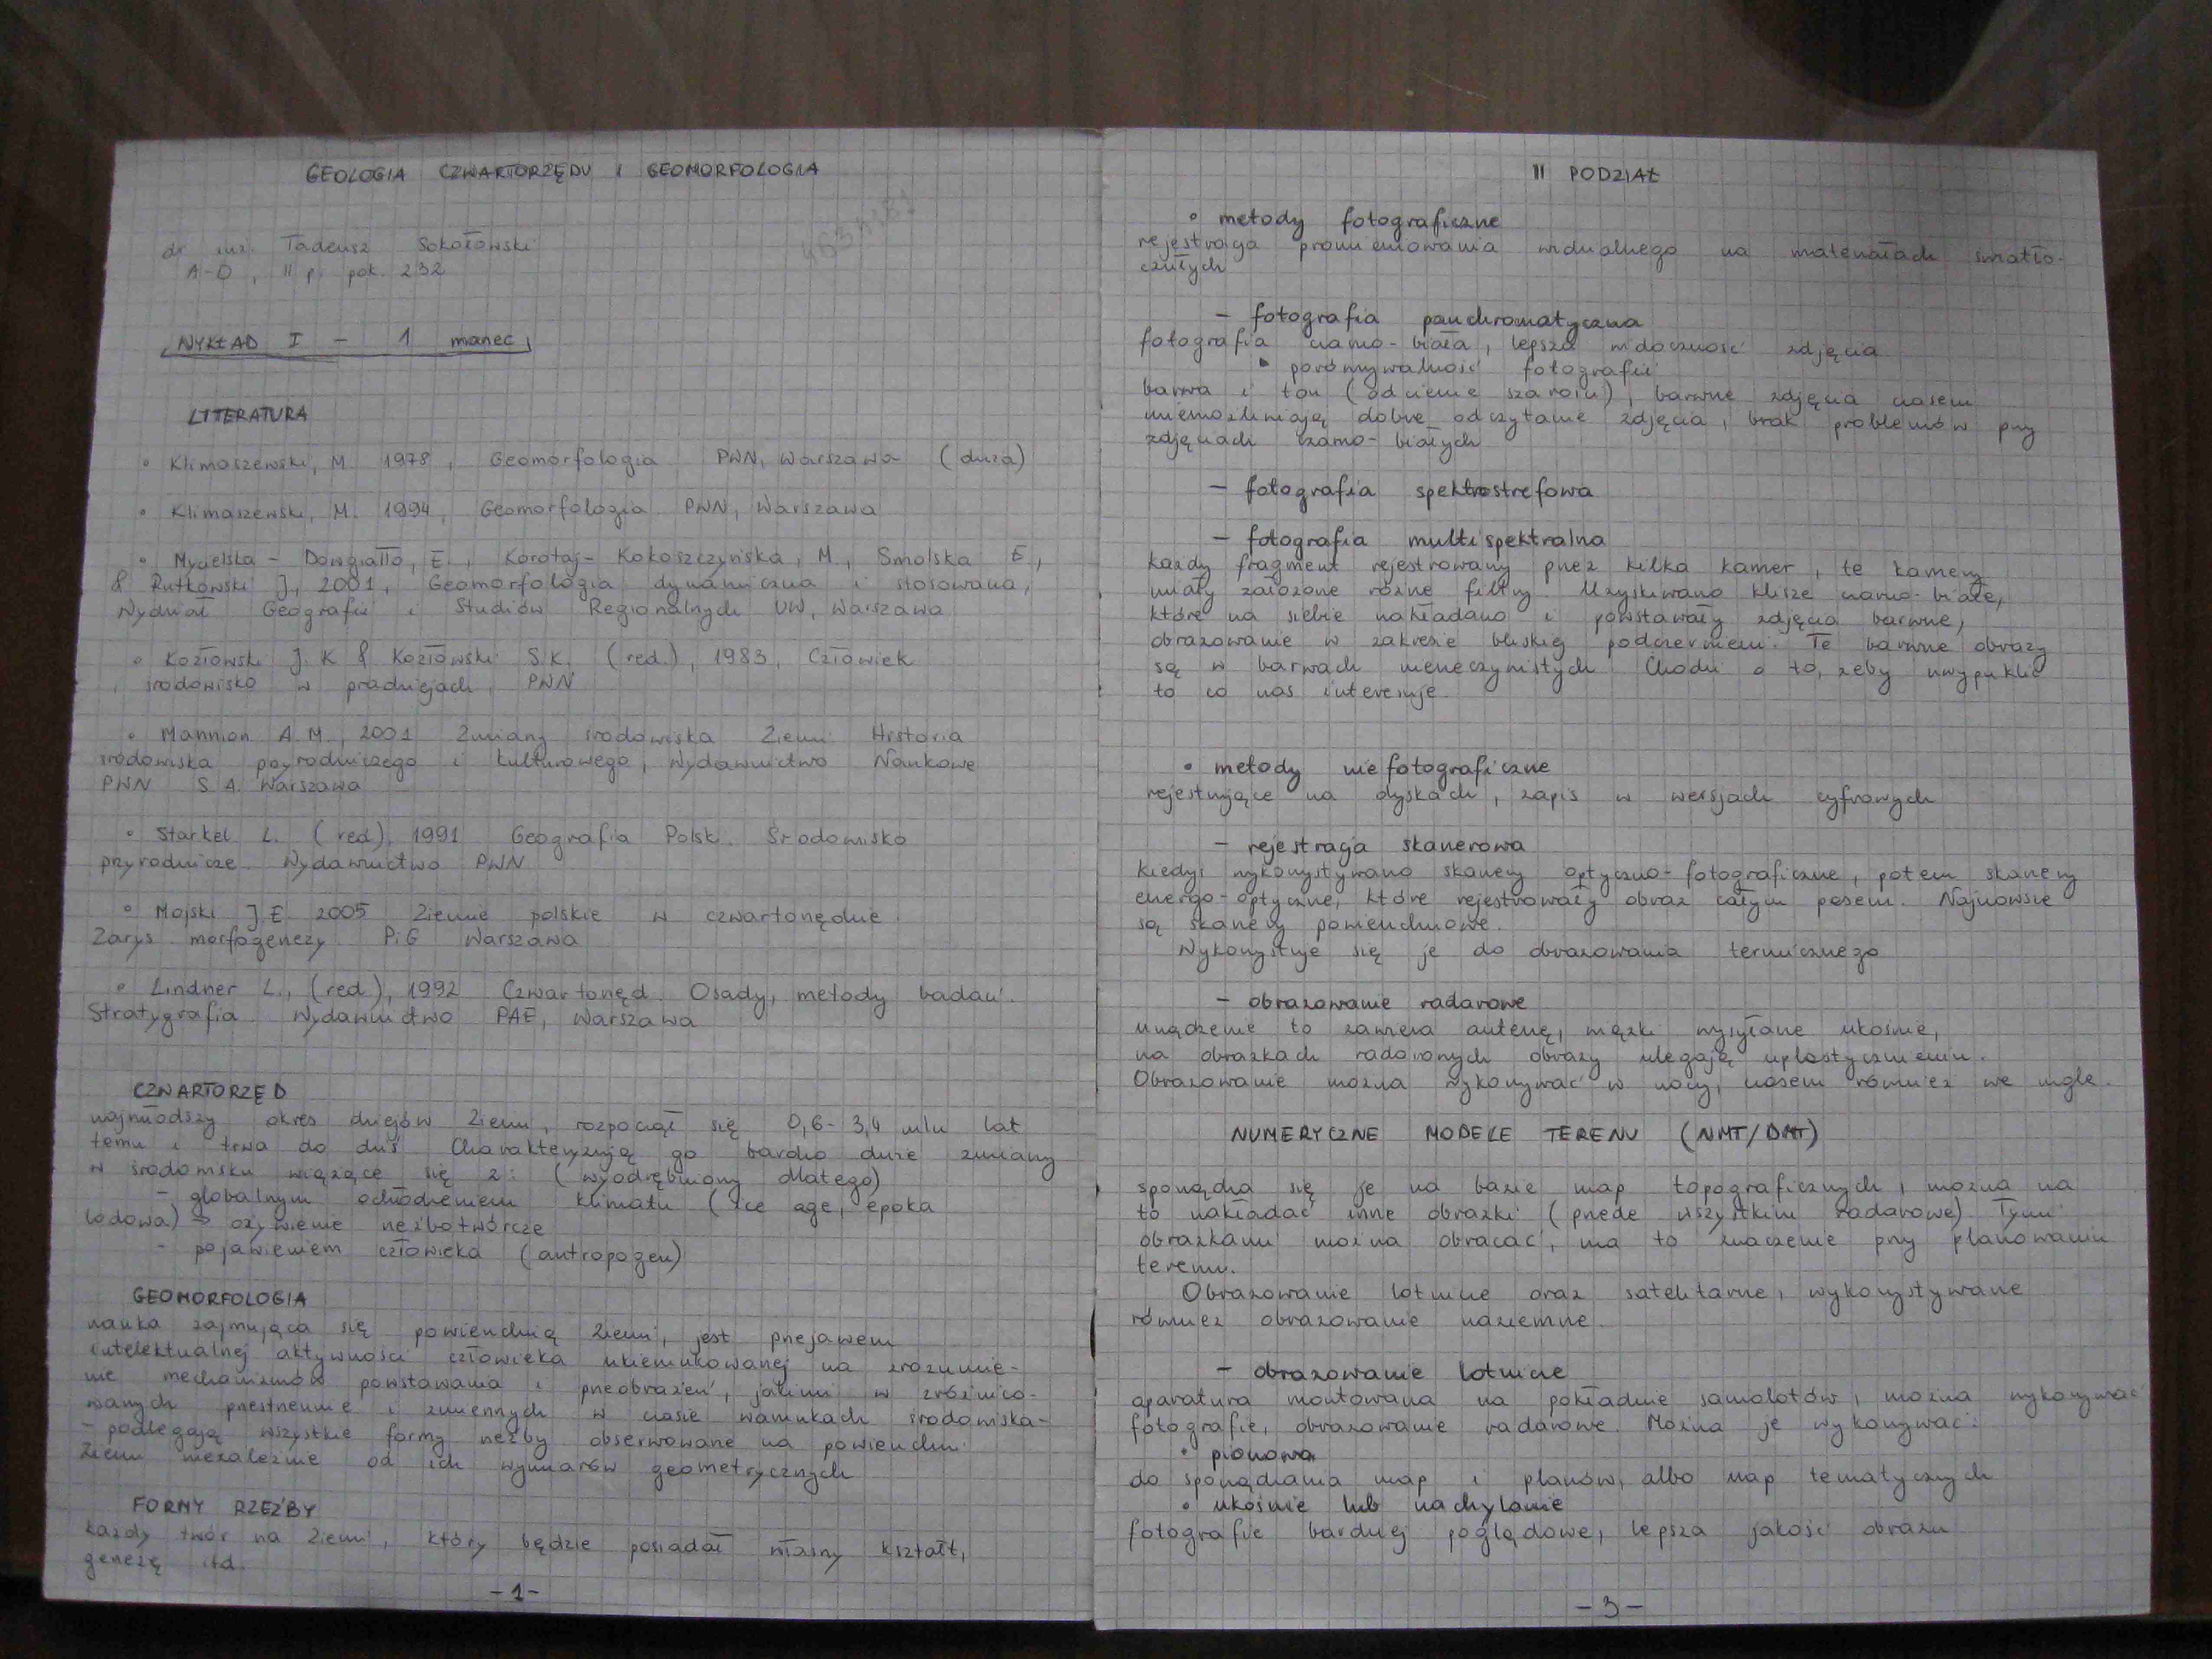 GEOLOGIA CZWARTORZĘDU I GEOMORFOLOGIA
dr inż. Tadeusz Sokołowski
A-0, II p. pok. 232
WYKŁAD I - 1 marzec
LITERATURA
• Klimaszewski, M. 1978, Geomorfologia PWN, Warszawa (duża)
• Klimaszewski, M. 1994, Geomorfologia PWN, Warszawa
• Mycielska - Dowgiałło, E., Korotaj - Kokoszczyńska, M., Smolska E,
& Rutkowski J., 2001, Geomorfologia dynamiczna i stosowana,
Wydział Geografii i Studiów Regionalnych UW, Warszawa
• Kozłowski J.K & Kozłowski S.K. (red.), 1983, Człowiek
i środowisko w pradziejach, PWN
• Mannion A.M., 2001 Zmiany środowiska Ziemi Historia
środowiska przyrodniczego i kulturowego, Wydawnictwo Naukowe
PWN S.A. Warszawa
• Starkel L. (red), 1991 Geografia Polsk. Środowisko
przyrodnicze. Wydawnictwo PWN
• Mojski J.E. 2005 Ziemie polskie w czwartorzędzie
Zarys morfogenezy PiG Warszawa
• Lindner L., (red), 1992 Czwartorzęd. Osady, metody badań.
Stratygrafia. Wydawnictwo PAE, Warszawa
CZWARTORZĘD
najmłodszy okres dziejów Ziemi, rozpoczął się 0,6 - 3,4 mln lat
temu i trwa do dziś Charakteryzują go bardzo duże zmiany
w środowisku wiążące się z: (wyodrębniony dlatego)
- globalnym ochłodzeniem klimatu (ice age, epoka
lodowa) ⇒ ożywienie rzeźbotwórcze
- pojawieniem człowieka (antropogen)
GEOMORFOLOGIA
nauka zajmująca się powierzchnią Ziemi, jest przejawem
intelektualnej aktywności człowieka ukierunkowanej na zrozumie-
nie mechanizmów powstawania i przeobrażeń, jakimi w zróżnico-
wanych przestrzennie i zmiennych w czasie warunkach środowiska -
- podlegają wszystkie formy rzeźby obserwowane na powierzchni
Ziemi niezależnie od ich wymiarów geometrycznych
FORMY RZEŹBY
każdy twór na Ziemi, który będzie posiadał własny kształt,
genezę itd.
- 1 -
II PODZIAŁ
• metody fotograficzne
rejestracja promieniowania widzialnego na materiałach światło-
czułych
- fotografia panchromatyczna
fotografia czarno-biała, lepsza widoczność zdjęcia
• porównywalność fotografii
barwa i ton (odcienie szarości), barwne zdjęcia czasem
uniemożliwiają dobre odczytanie zdjęcia, brak problemów przy
zdjęciach czarno-białych
- fotografia spektrostrefowa
- fotografia multispektralna
każdy fragment rejestrowany przez kilka kamer, te kamery
miały założone różne filtry. Uzyskiwano klisze czarno-białe,
które na siebie nakładano i powstawały zdjęcia barwne,
obrazowanie w zakresie bliskiej podczerwieni. Te barwne obrazy
są w barwach nierzeczywistych Chodzi o to, żeby uwypuklić
to co nas interesuje
• metody niefotograficzne
rejestrujące na dyskach, zapis w wersjach cyfrowych
- rejestracja skanerowa
Kiedyś wykorzystywano skanery optyczno-fotograficzne, potem skanery
energo-optyczne, które rejestrowały obraz całym pasem. Najnowsze
są skanery powierzchniowe.
Wykorzystuje się je do obrazowania termicznego
- obrazowanie radarowe
urządzenie to zawiera antenę, wiązki wysyłane ukośnie,
na obrazkach radarowych obrazy ulegają uplastycznieniu.
Obrazowanie można wykonywać w nocy, czasem również we mgle.
NUMERYCZNE MODELE TERENU (NMT/DMT)
sporządza się je na bazie map topograficznych, można na
to nakładać inne obrazki (przede wszystkim radarowe) Tymi
obrazkami można obracać, ma to znaczenie przy planowaniu
terenu.
Obrazowanie lotnicze oraz satelitarne, wykorzystywane
również obrazowanie naziemne.
- obrazowanie lotnicze
aparatura montowana na pokładzie samolotów, można wykonywać
fotografie, obrazowanie radarowe. Można je wykonywać:
• pionowa
do sporządzania map i planów, albo map tematycznych
• ukośnie lub nachylanie
fotografie bardziej poglądowe, lepsza jakość obrazu
- 3 -